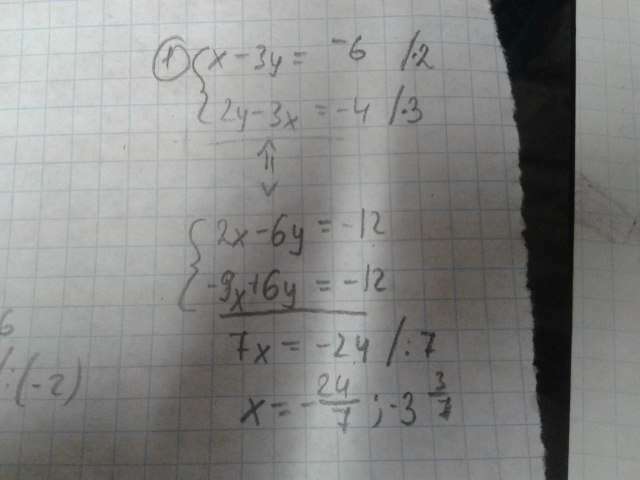 ① { x-3y= -6 /·2
2y-3x = -4 /·3
⇕
{ 2x-6y = -12
-9x+6y = -12
7x = -24 /:7
x = -24/7 ; -3 3/7
6
/:(-2)